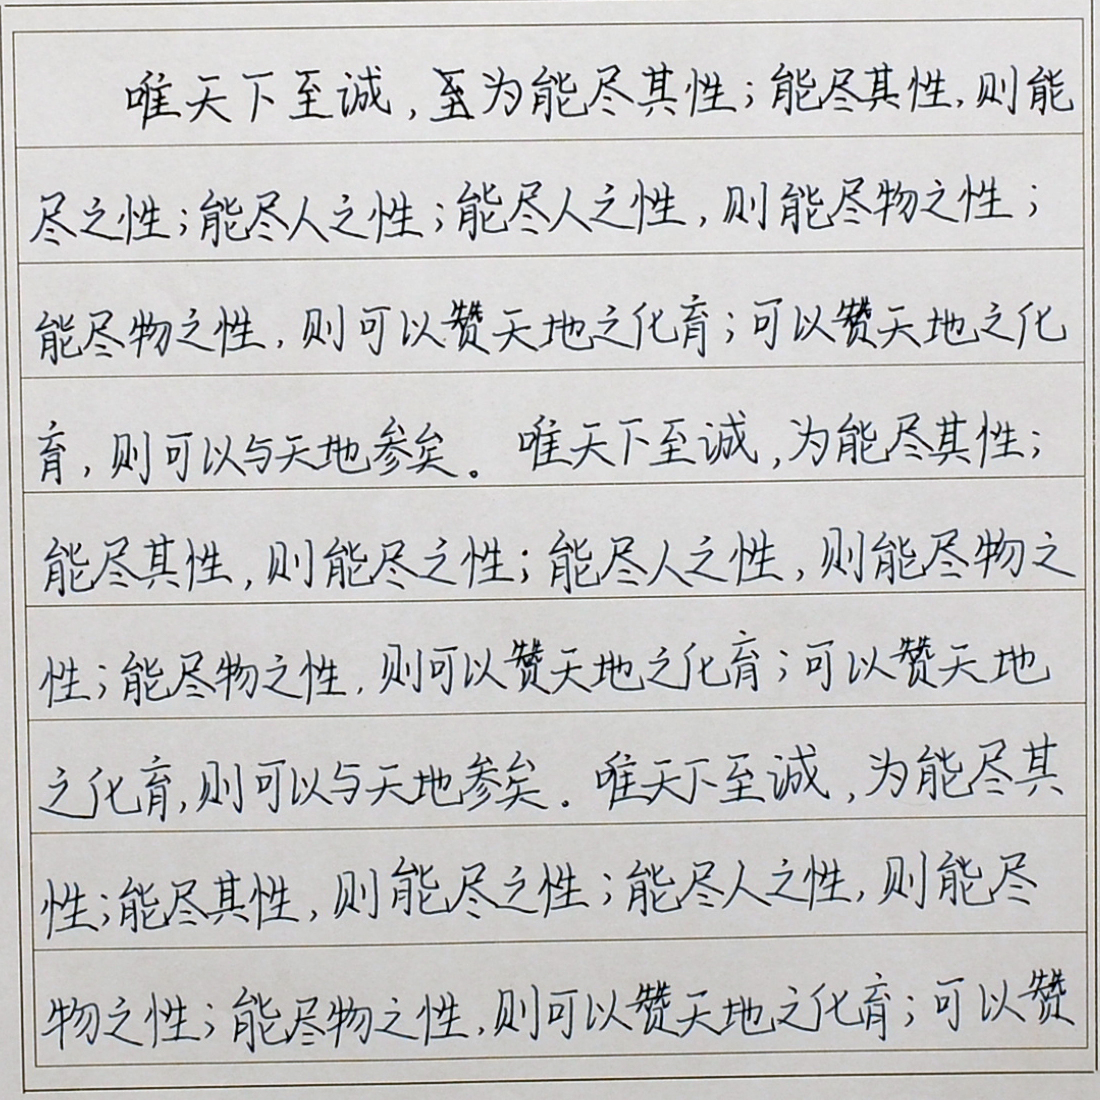 唯天下至诚,至为能尽其性;能尽其性,则能
尽之性;能尽人之性;能尽人之性,则能尽物之性;
能尽物之性,则可以赞天地之化育;可以赞天地之化
育,则可以与天地参矣。唯天下至诚,为能尽其性;
能尽其性,则能尽之性;能尽人之性,则能尽物之
性;能尽物之性,则可以赞天地之化育;可以赞天地
之化育,则可以与天地参矣。唯天下至诚,为能尽其
性;能尽其性,则能尽之性;能尽人之性,则能尽
物之性;能尽物之性,则可以赞天地之化育;可以赞